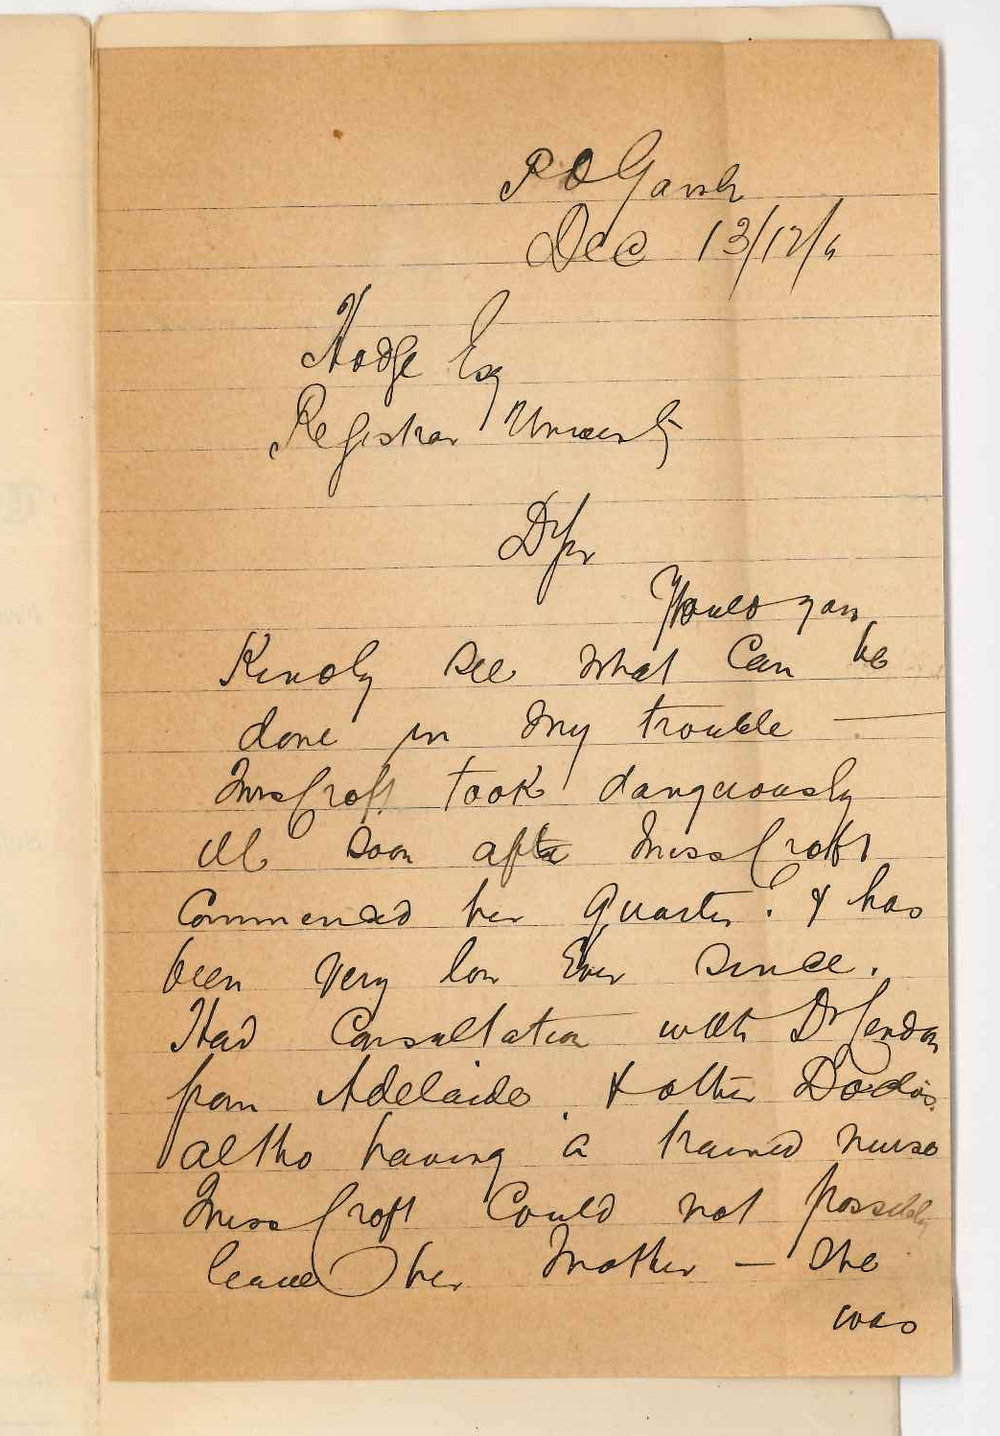 P O Gawler
Dec 13/12/
Hodge Esq
Registrar University
D Sir
Would you
Kindly see what can be
done in my trouble —
Mrs Croft took dangerously
ill soon after Miss Croft
commenced her Quarter. & has
been very low Ever since.
Had Consultation with Dr Lendon
from Adelaide. & other Doctors
altho having a trained nurse
Miss Croft Could not possibly
leave her Mother — She
was